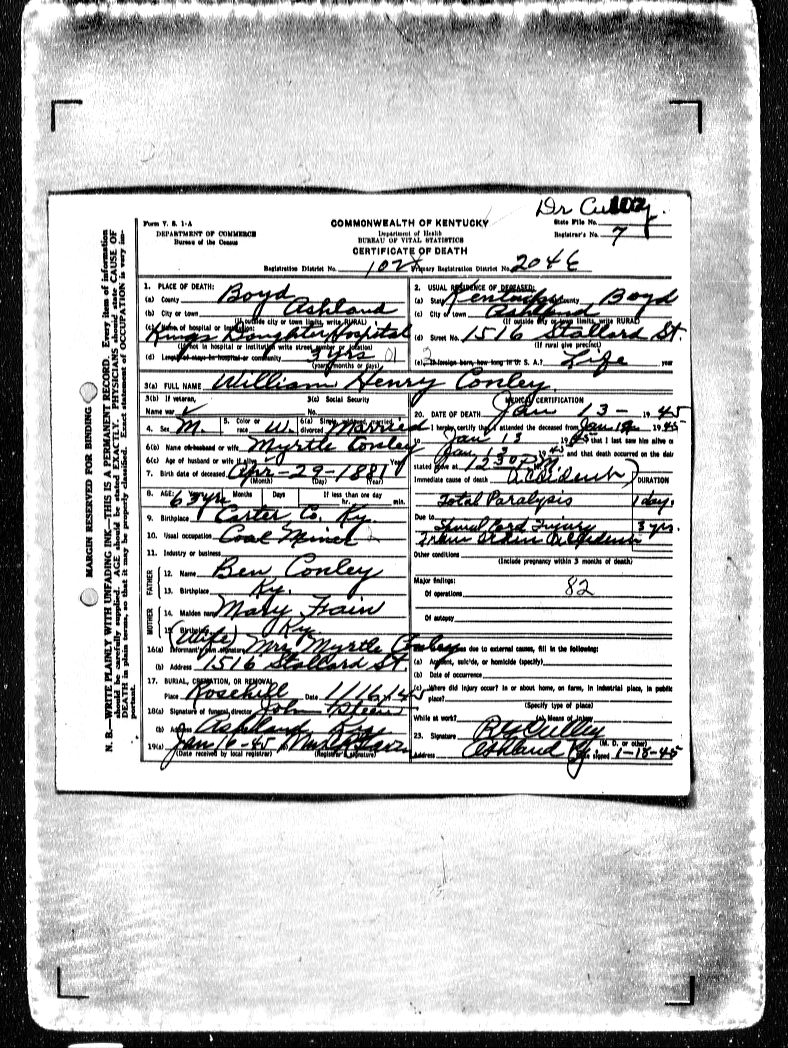 Dr Culley
Form V. S. 1-A
DEPARTMENT OF COMMERCE
Bureau of the Census
COMMONWEALTH OF KENTUCKY
Department of Health
BUREAU OF VITAL STATISTICS
CERTIFICATE OF DEATH
State File No. 102
Registrar's No. 7
Registration District No. 102 Primary Registration District No. 2046
MARGIN RESERVED FOR BINDING
N. B.—WRITE PLAINLY WITH UNFADING INK—THIS IS A PERMANENT RECORD. Every item of information
should be carefully supplied. AGE should be stated EXACTLY. PHYSICIANS should state CAUSE OF
DEATH in plain terms, so that it may be properly classified. Exact statement of OCCUPATION is very im-
portant.
1. PLACE OF DEATH:
(a) County Boyd
(b) City or town Ashland
(If outside city or town limits, write RURAL)
(c) Name of hospital or institution:
Kings Daughter Hospital
(If not in hospital or institution write street number or location)
(d) Length of stay: In hospital or community 3 yrs 01
(years, months or days)
2. USUAL RESIDENCE OF DECEASED:
(a) State Kentucky County Boyd
(c) City or town Ashland
(If outside city or town limits, write RURAL)
(d) Street No. 1516 Stallard St.
(If rural give precinct)
(e) If foreign born, how long in U. S. A.? Life year
3(a) FULL NAME William Henry Conley
3(b) If veteran,
Name war
3(c) Social Security
No.
4. Sex M. 5. Color or race W. 6(a) Single, widowed, married, divorced Married
6(b) Name of husband or wife Myrtle Conley
6(c) Age of husband or wife if alive Years
7. Birth date of deceased Apr-29-1881
(Month) (Day) (Year)
8. AGE: 63 yrs Months Days If less than one day
hr. min.
9. Birthplace Carter Co. Ky.
10. Usual occupation Coal Miner
11. Industry or business
FATHER
12. Name Ben Conley
13. Birthplace Ky.
MOTHER
14. Maiden name Mary Frain
15. Birthplace Ky.
(Wife)
16(a) Informant's own signature Mrs Myrtle Conley
(b) Address 1516 Stallard St.
17. BURIAL, CREMATION, OR REMOVAL
Place Rosehill Date 1/16/1945
18(a) Signature of funeral director John Steen
(b) Address Ashland Ky
19(a) Jan 16-45
(Date received by local registrar) (Registrar's signature)
MEDICAL CERTIFICATION
20. DATE OF DEATH Jan 13- 1945
I hereby certify that I attended the deceased from Jan 12 1945
to Jan 13 1945 that I last saw him alive on
Jan 13 1945 and that death occurred on the date
stated above at 12:30 P M.
Immediate cause of death Accident DURATION
Total Paralysis 1 day.
Due to
Spinal Cord Injury 3 yrs.
Accident
Other conditions
(Include pregnancy within 3 months of death)
Major findings:
Of operations 82
Of autopsy
If death was due to external causes, fill in the following:
(a) Accident, suicide, or homicide (specify)
(b) Date of occurrence
(c) Where did injury occur? In or about home, on farm, in industrial place, in public
place?
(Specify type of place)
While at work? (e) Means of injury
23. Signature Culley
(M. D. or other)
Address Ashland Ky. Date signed 1-15-45